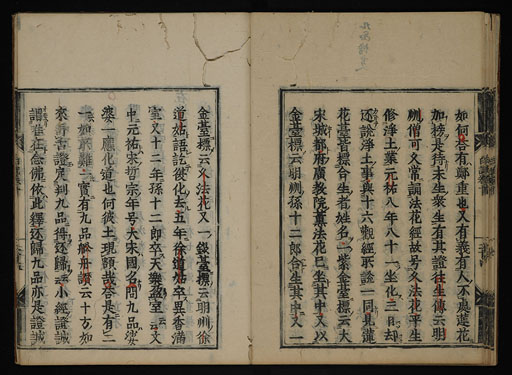 如何答有鄭重也又有義有人不蓮花
是待未生衆生有其證往生傳云明
州僧可久常誦法花經故号久法花平生
修淨土業元祐八年八十一坐化三日却
還說淨土事與十六觀經所證一同見蓮
花臺皆標合生者姓名一紫金臺標云大
宋城都府廣教院薰法花已生其中又以
金臺標云明州孫十二郎合生其中又一
金臺標云又法花又一銀臺標云明州徐
道姑語訖復化去五年徐道姑卒異香滿
室又十二年孫十二郎卒天樂盈室云文
中元祐宋哲宗年号大宋國名問九品娑
婆一應化道也何彼土現哉答是有二
一如前難二實有九品般舟讚云十方如
來舒舌證定判九品得還歸云小經證誠
謂唯在念佛依此釋還歸九品亦是證誠